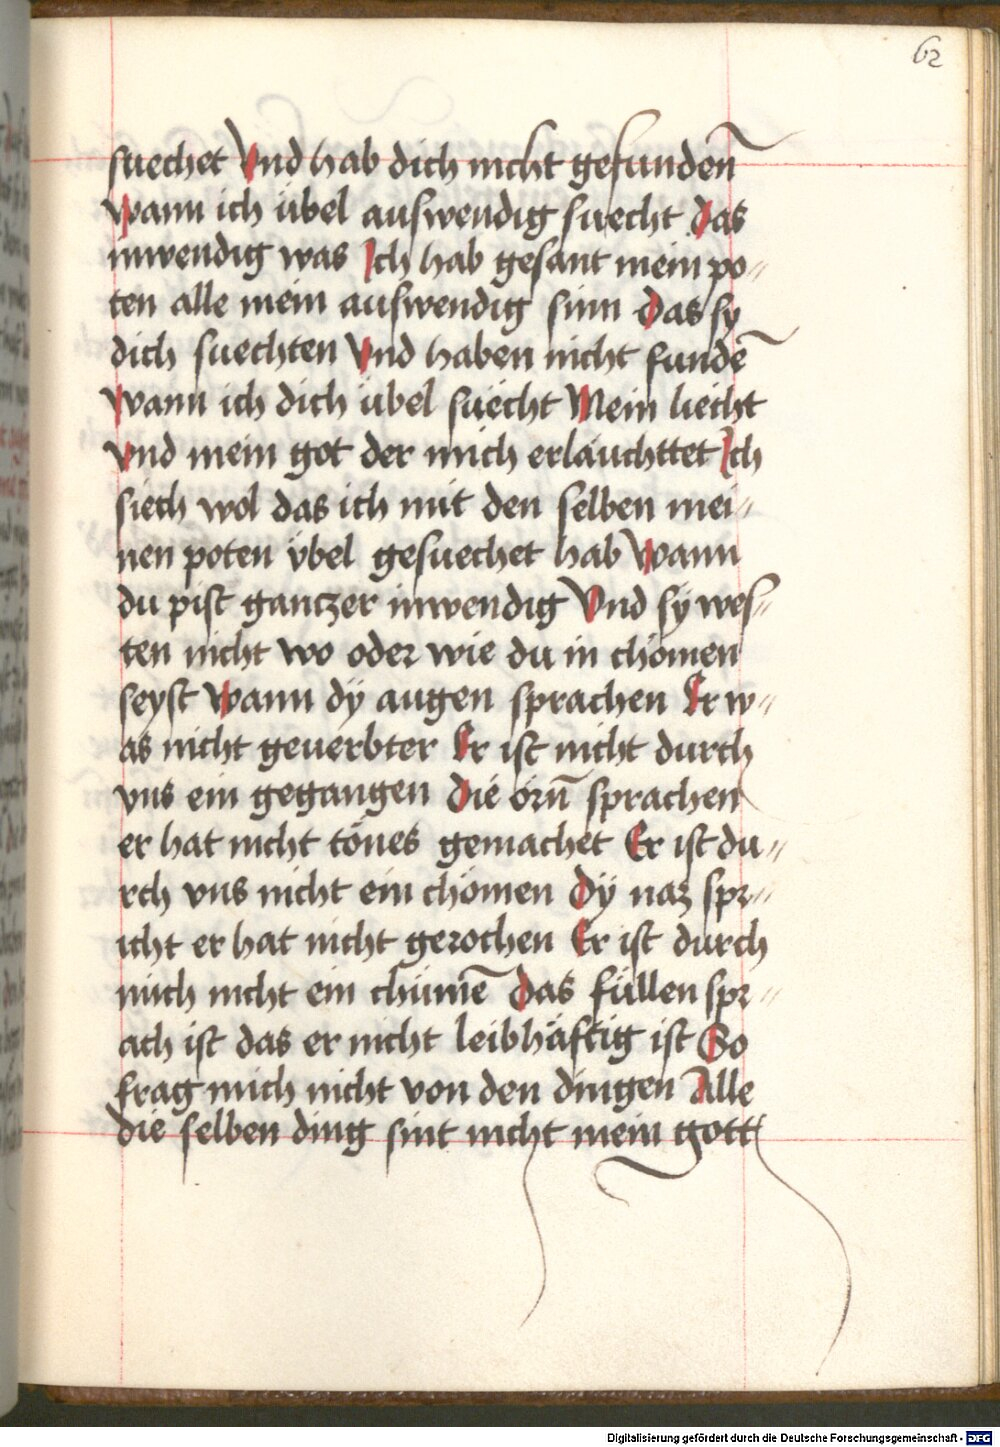 62
suechet Vnd hab dich nicht gefunden̄
Wann ich übel auswendig suecht Das
inwendig was Ich hab gesant mein po-
ten alle mein auswendig sinn Das sy
dich suechten Vnd haben nicht fundē
Wann ich dich übel suecht Mein liecht
vnd mein got der mich erläuchttet Ich
siech wol das ich mit den selben mei-
nen poten übel gesuechet hab Wann
du pist gantzer inwendig Vnd sÿ wes-
ten nicht wo oder wie du in chömen
seyst Wann dÿ augen sprachen Er w-
as nicht geuerbter Er ist nicht durch
vns ein gegangen Die örn̄ sprachen
er hat nicht tönes gemachet Er ist du-
rch vns nicht ein chömen Dÿ naz spr-
icht er hat nicht gerochen Er ist durch
mich nicht ein chümē Das füllen spr-
ach ist das er nicht leibhäftig ist So
frag mich nicht von den dingen Alle
die selben ding sint nicht mein gott
Digitalisierung gefördert durch die Deutsche Forschungsgemeinschaft - DFG